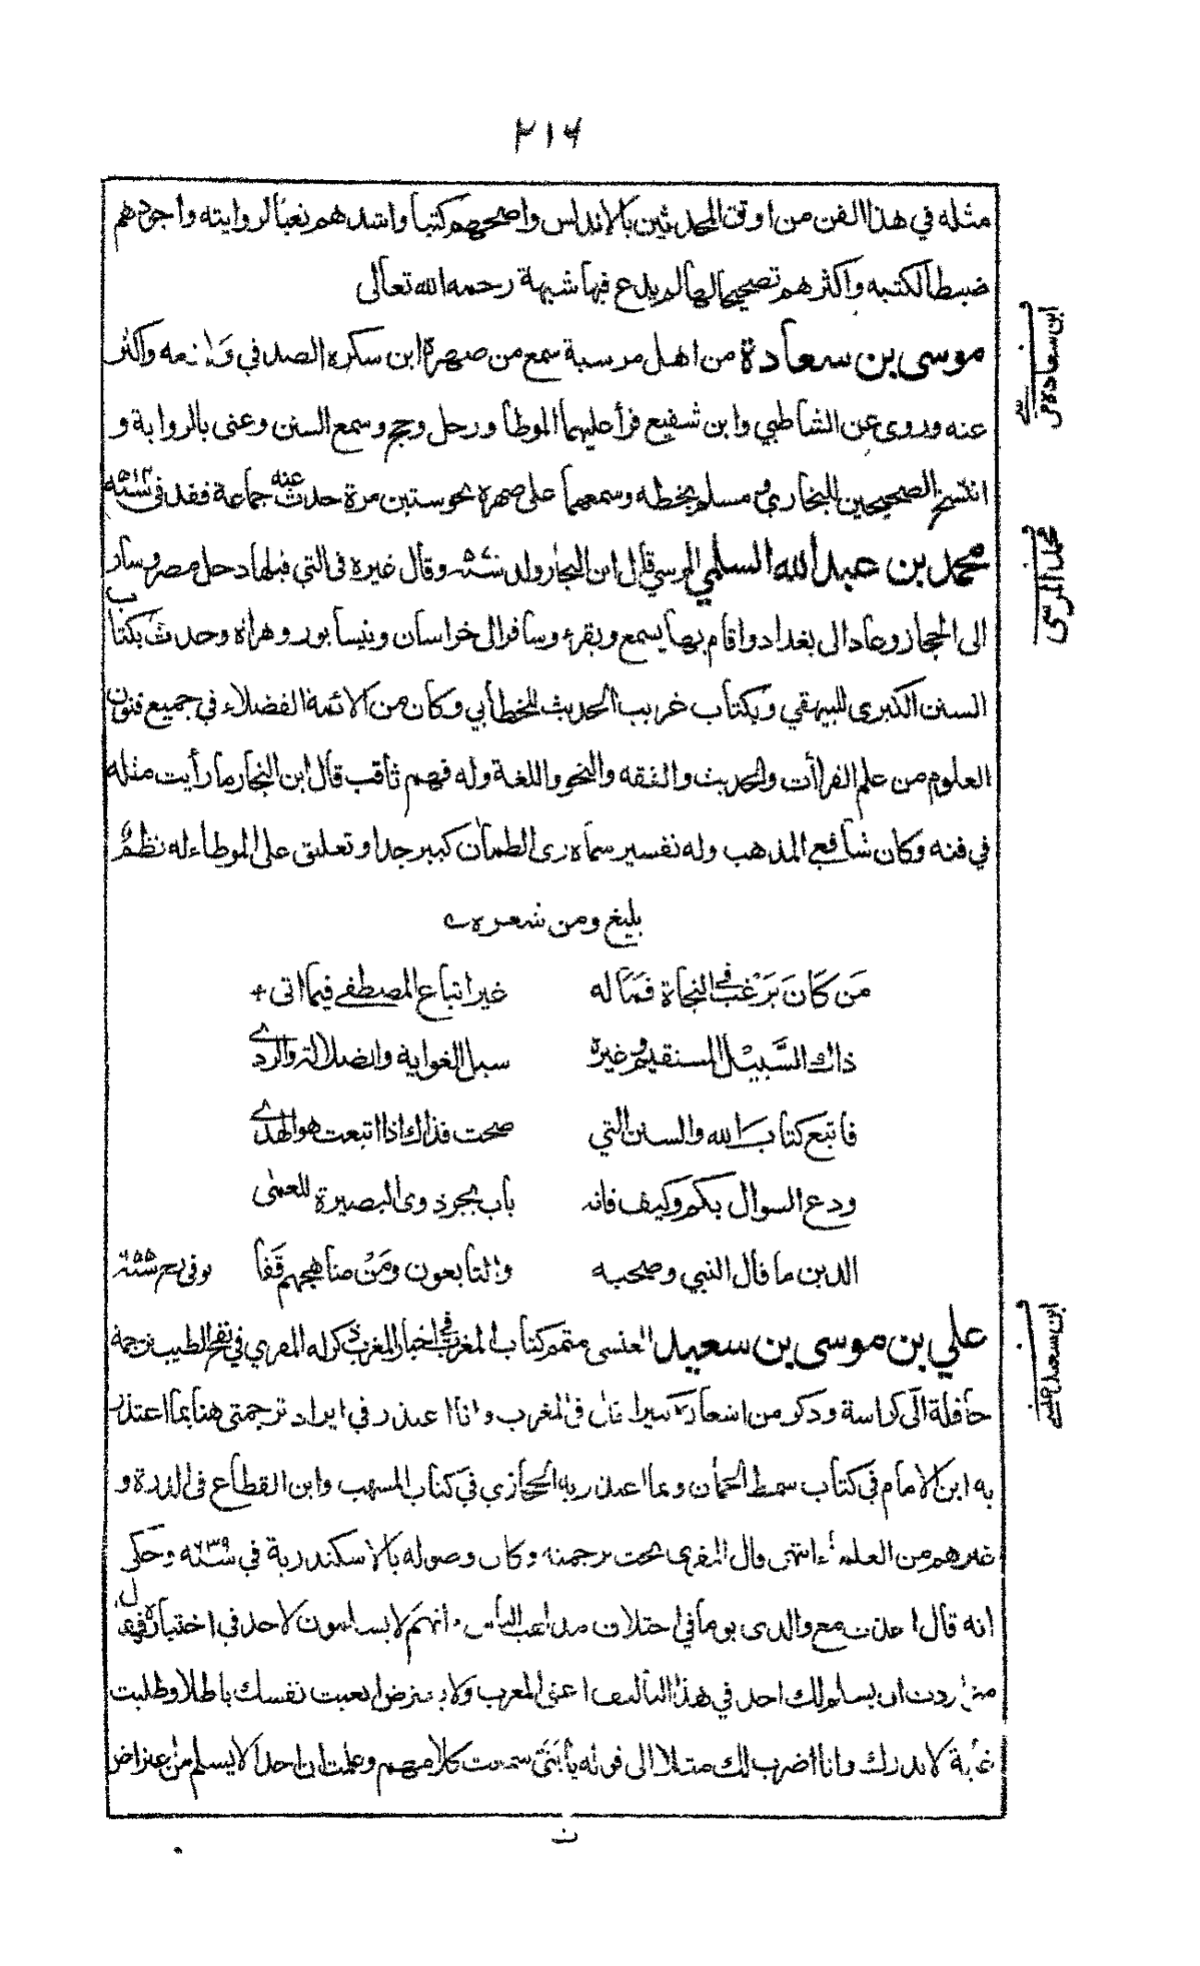 ٢١٦
مثله في هذا الفن من اوثق المحدثين بالاندلس واصحهم كتبا واشدهم تعبا لروايته واجودهم
ضبطا لكتبه واكثرهم تصحيحا لها لم يدع فيها شبهة رحمه الله تعالى
موسى بن سعادة من اهل مرسية سمع من صهره ابن سكره الصدفي واكثر
عنه وروى عن الشاطبي وابن شفيع قرأ عليهما الموطأ ورحل وحج وسمع السنن وعنى بالرواية و
انتسخ الصحيحين البخاري ومسلم بخطه وسمعهما على صهره نحو ستين مرة حدث عنه جماعة فقد في سنة ٥١٤
محمد بن عبد الله السلمي المرسي قال ابن النجار ولد سنة ٥٧٠ وقال غيره في التي قبلها دخل مصر وسار
الى الحجاز وعاد الى بغداد واقام بها يسمع ويقرء وسافر الى خراسان ونيسابور وهراة وحدث بكتاب
السنن الكبرى للبيهقي وبكتاب غريب الحديث للخطابي وكان من الائمة الفضلاء في جميع فنون
العلوم من علم القراآت والحديث والفقه والنحو واللغة وله فهم ثاقب قال ابن النجار ما رأيت مثله
في فنه وكان شافعي المذهب وله تفسير سماه رى الظمان كبير جدا وتعليق على الموطاء له نظمٌ
بليغ ومن شعره
مَن كَانَ يَرْغَب في النجاة فَمَا له غير اتباع المصطفى فيما اتى
ذاك السَّبِيْل المستقيم وغيره سبل الغواية والضلالة والردى
فاتبع كتاب الله والسنن التي صحت فذاك اذا اتبعت هو الهدى
ودع السوال بكم وكيف فانه باب يجر ذوى البصيرة للعمى
الدين ما قال النبي وصحبه والتابعون ومَنْ مناهجهم قَفا توفى رح سنة ٦٥٥
علي بن موسى بن سعيد العنسى متمم كتاب المغرب في اخبار المغرب ذكر له المقري في نفح الطيب ترجمة
حافلة الى كراسة وذكر من اشعاره كثيرا قال في المغرب وانا اعتذر في ايراد ترجمتى هنا بما اعتذر
به ابن الامام في كتاب سمط الجمان وبما اعتذر به الحجازي في كتاب المسهب وابن القطاع في الدرة و
غيرهم من العلماء انتهى قال المقري تحت ترجمته وكان وصوله بالاسكندرية في سنة ٦٣٩ وحكى
انه قال اخذت مع والدى يوما في اختلاف مذاهب الناس وانهم لا يسلمون لاحد في اختياره فقال
متى اردت ان يسلم لك احد في هذا التأليف اعنى المغرب ولا يعترض اتعبت نفسك باطلا وطلبت
غاية لا تدرك وانا اضرب لك مثلا الى قوله يا بُنَىَّ سمعت كلامهم وعلمت ان احدا لا يسلم من اعتراض
ابن سعادة
محمد المرسى
ابن سعيد